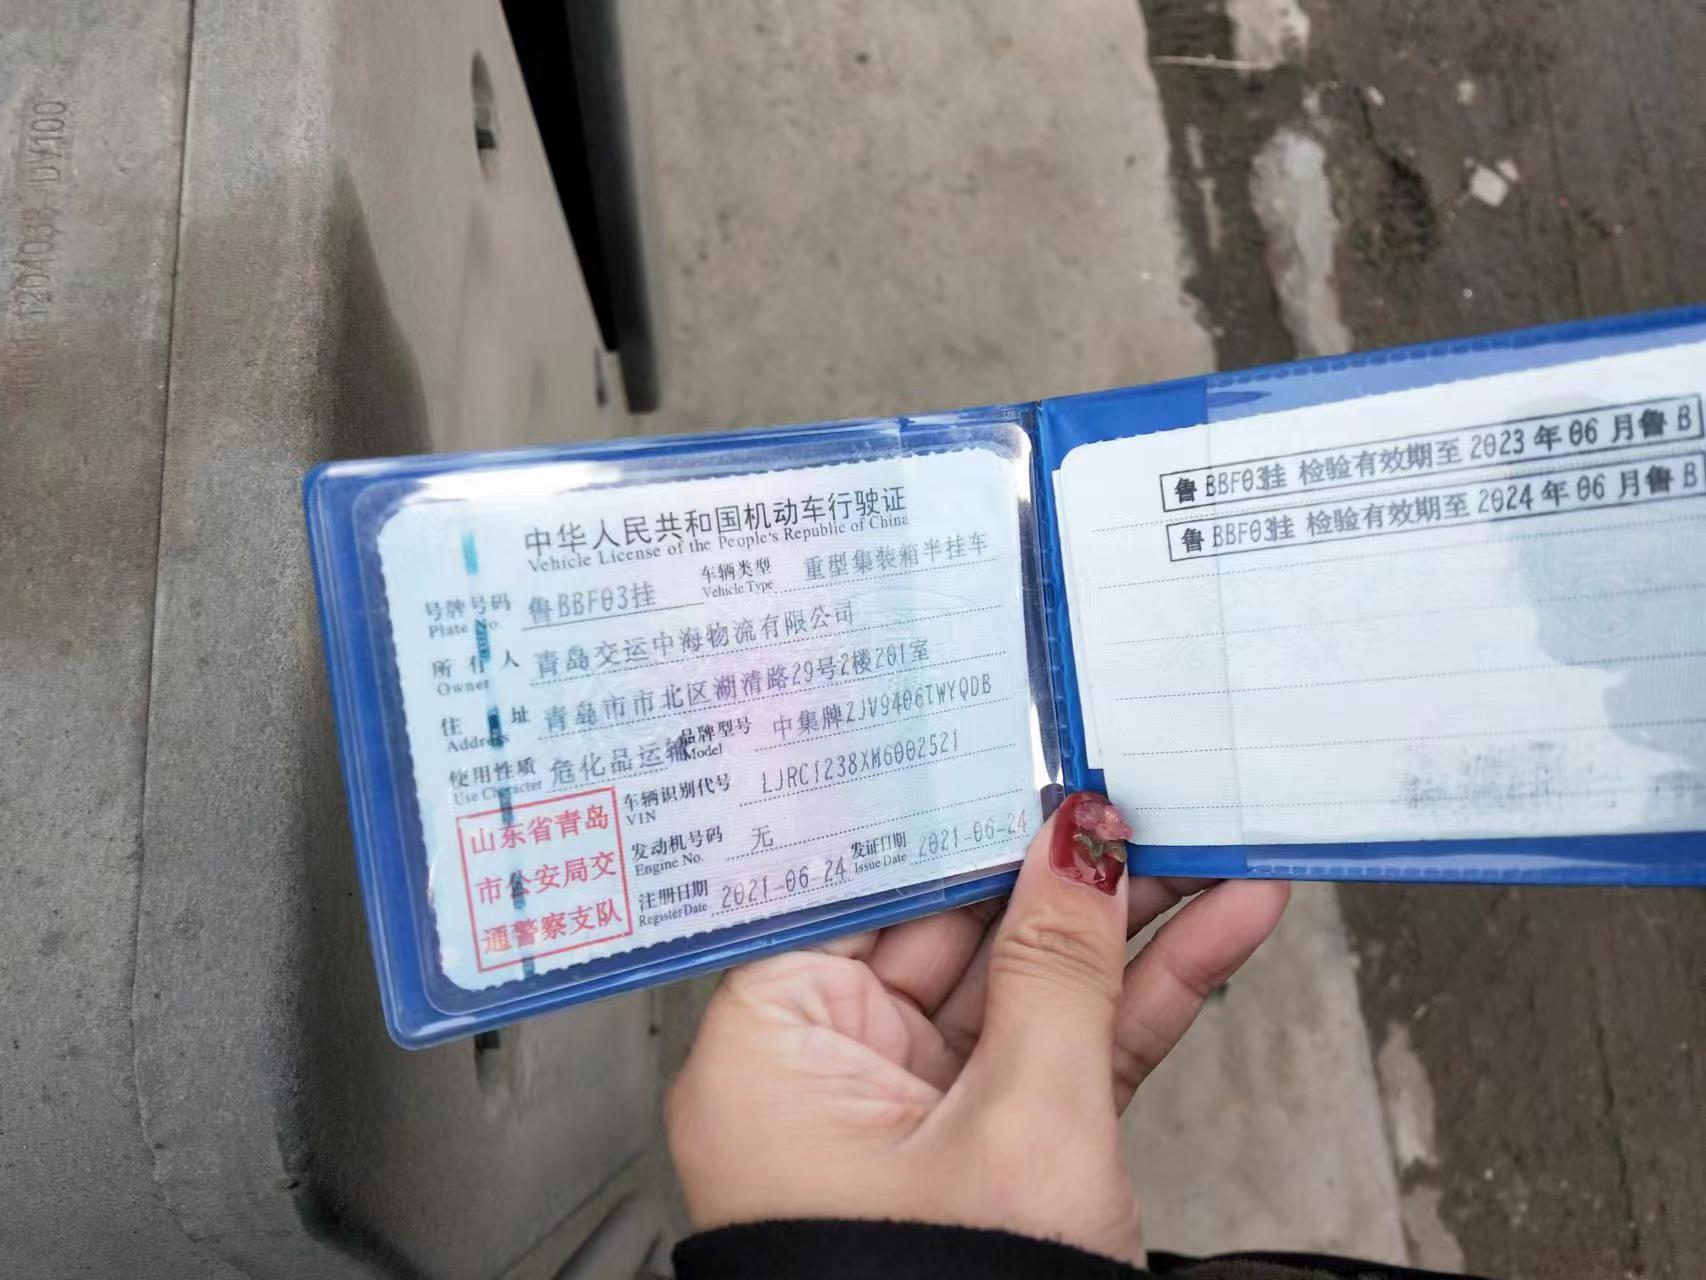 120403B UY100
中华人民共和国机动车行驶证
Vehicle License of the People's Republic of China
号牌号码 鲁BBF03挂 车辆类型 重型集装箱半挂车
Plate No. Vehicle Type
所有人 青岛交运中海物流有限公司
Owner
住址 青岛市市北区湖清路29号2楼201室
Address
使用性质 危化品运输 品牌型号 中集牌ZJV9406TWYQDB
Use Character Model
车辆识别代号 LJRC1238XM6002521
VIN
发动机号码 无
Engine No.
注册日期 2021-06-24 发证日期 2021-06-24
Register Date Issue Date
山东省青岛
市公安局交
通警察支队
鲁BBF03挂 检验有效期至2023年06月鲁B
鲁BBF03挂 检验有效期至2024年06月鲁B